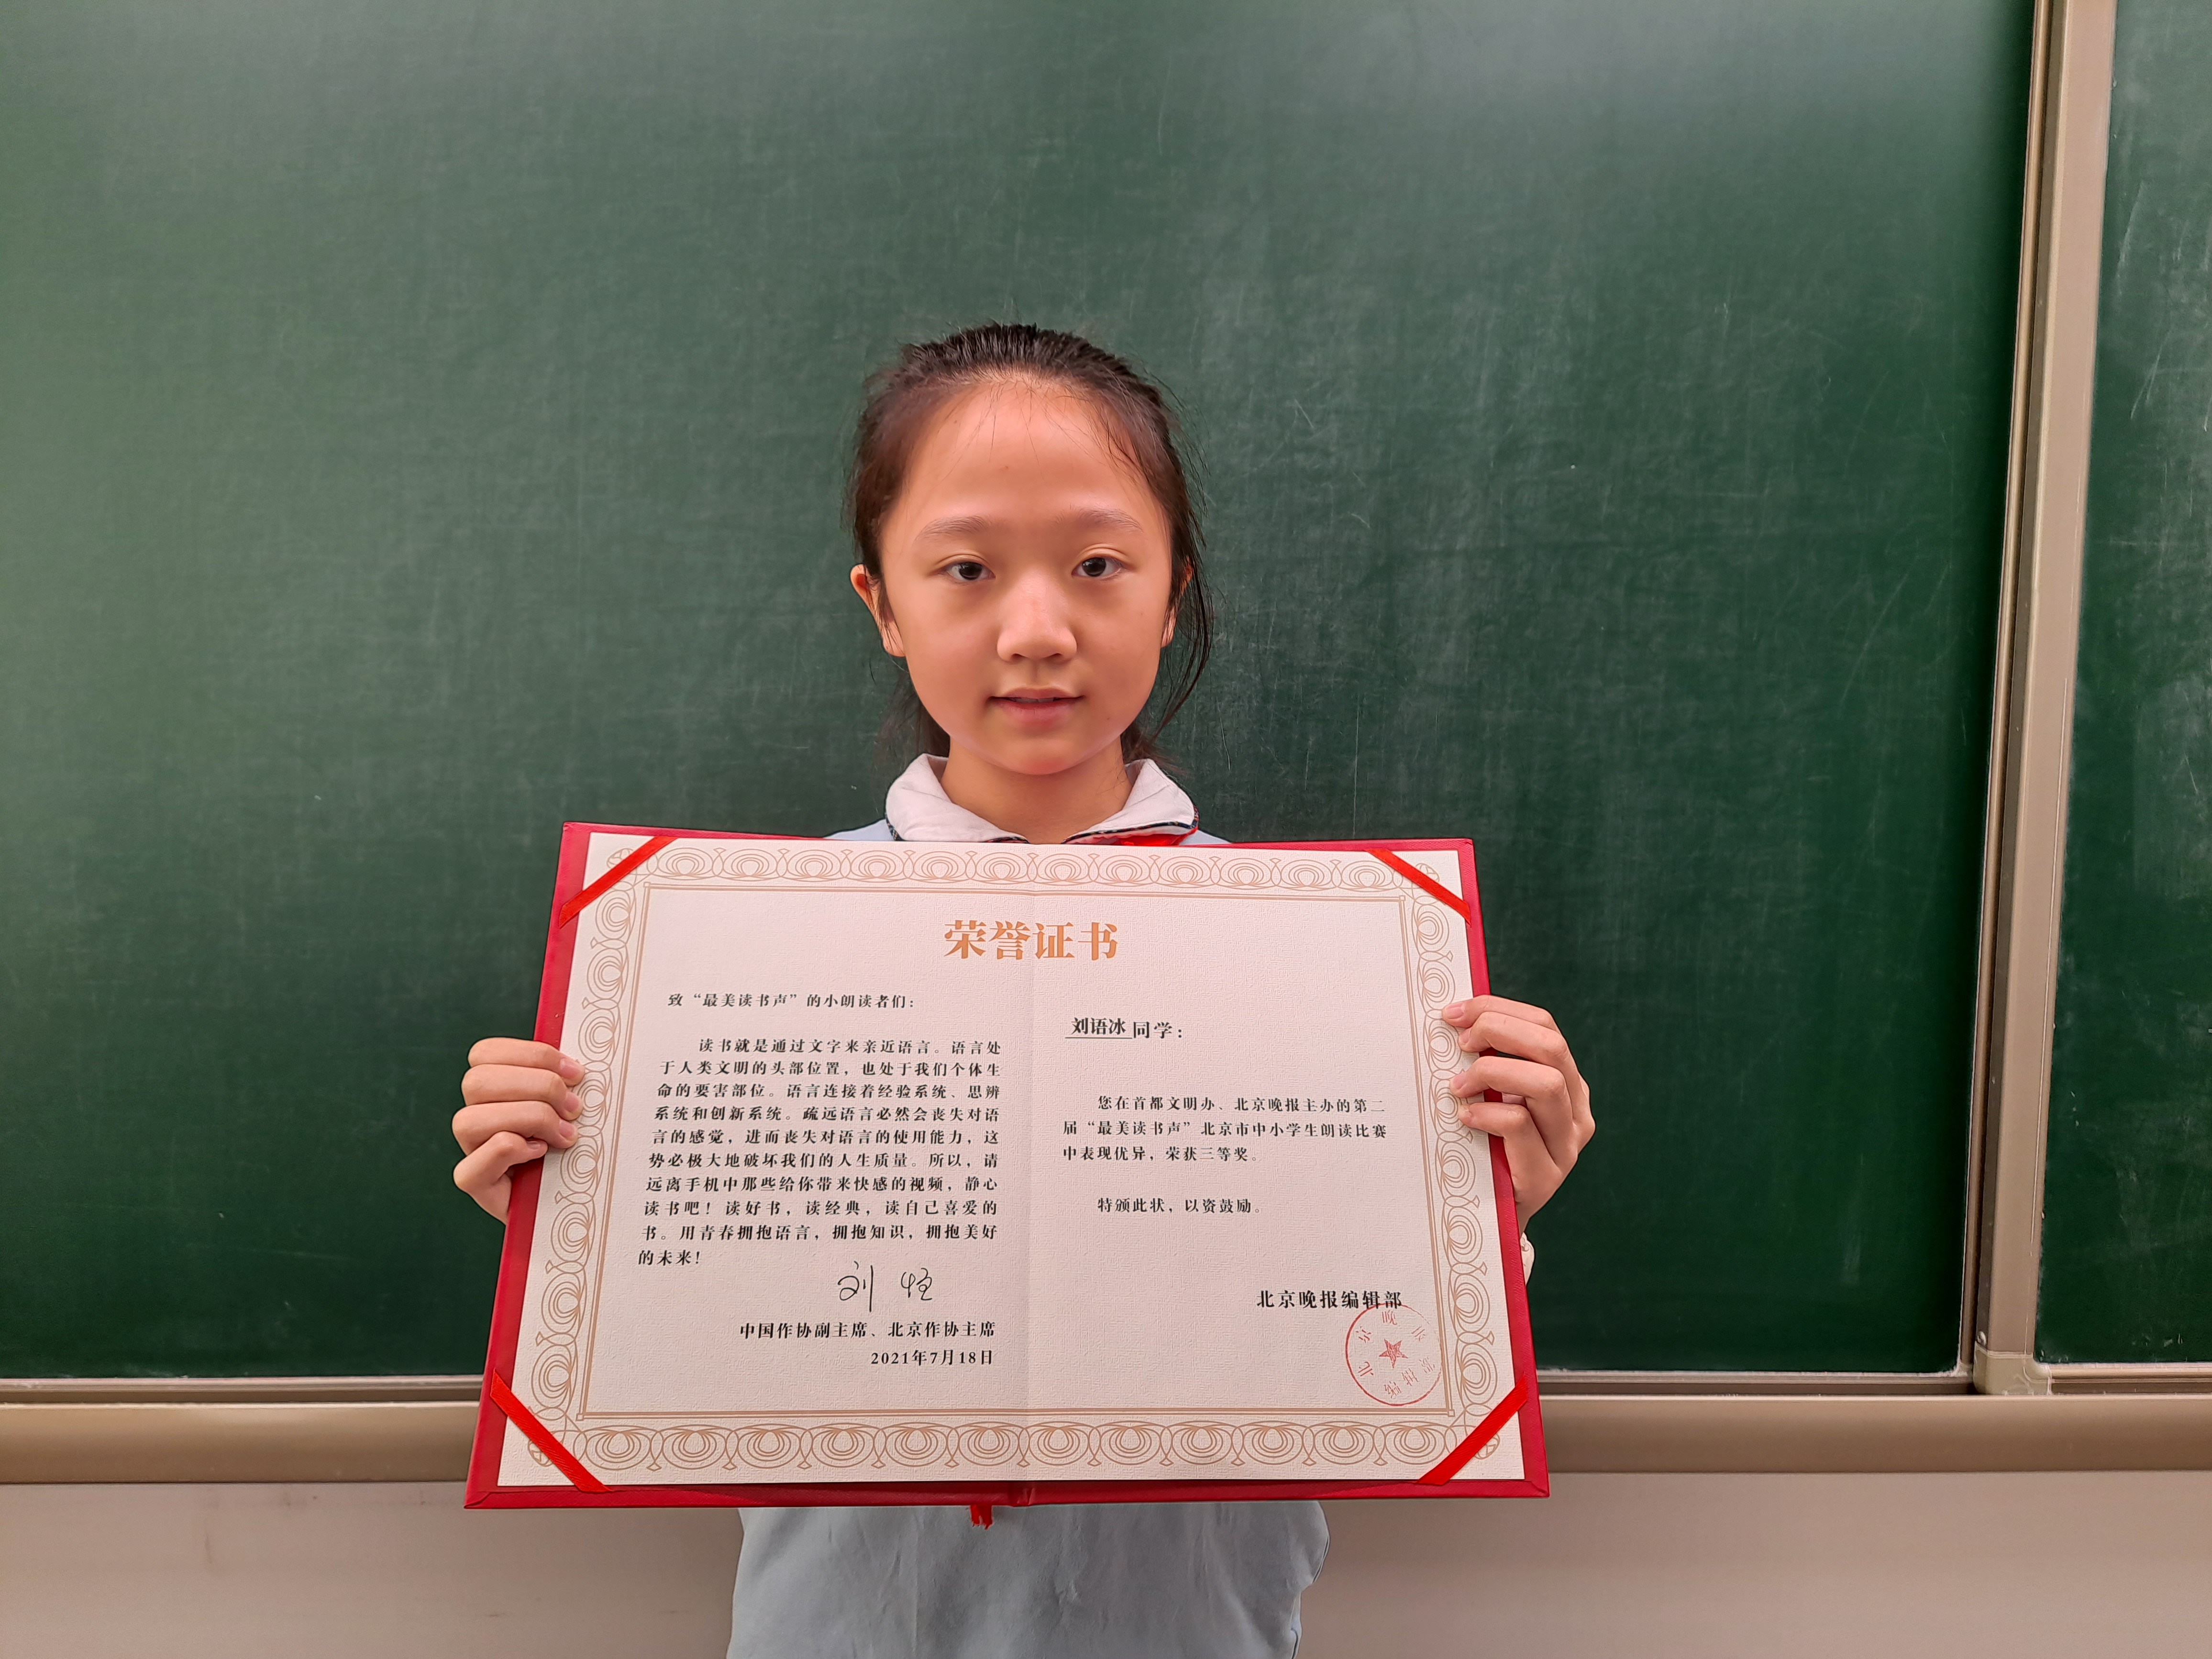 荣誉证书
致“最美读书声”的小朗读者们：
读书就是通过文字来亲近语言。语言处
于人类文明的头部位置，也处于我们个体生
命的要害部位。语言连接着经验系统、思辨
系统和创新系统。疏远语言必然会丧失对语
言的感觉，进而丧失对语言的使用能力，这
势必极大地破坏我们的人生质量。所以，请
远离手机中那些给你带来快感的视频，静心
读书吧！读好书，读经典，读自己喜爱的
书。用青春拥抱语言，拥抱知识，拥抱美好
的未来！
刘恒
中国作协副主席、北京作协主席
2021年7月18日
刘语冰同学：
您在首都文明办、北京晚报主办的第二
届“最美读书声”北京市中小学生朗读比赛
中表现优异，荣获三等奖。
特颁此状，以资鼓励。
北京晚报编辑部
北京晚报
编辑部